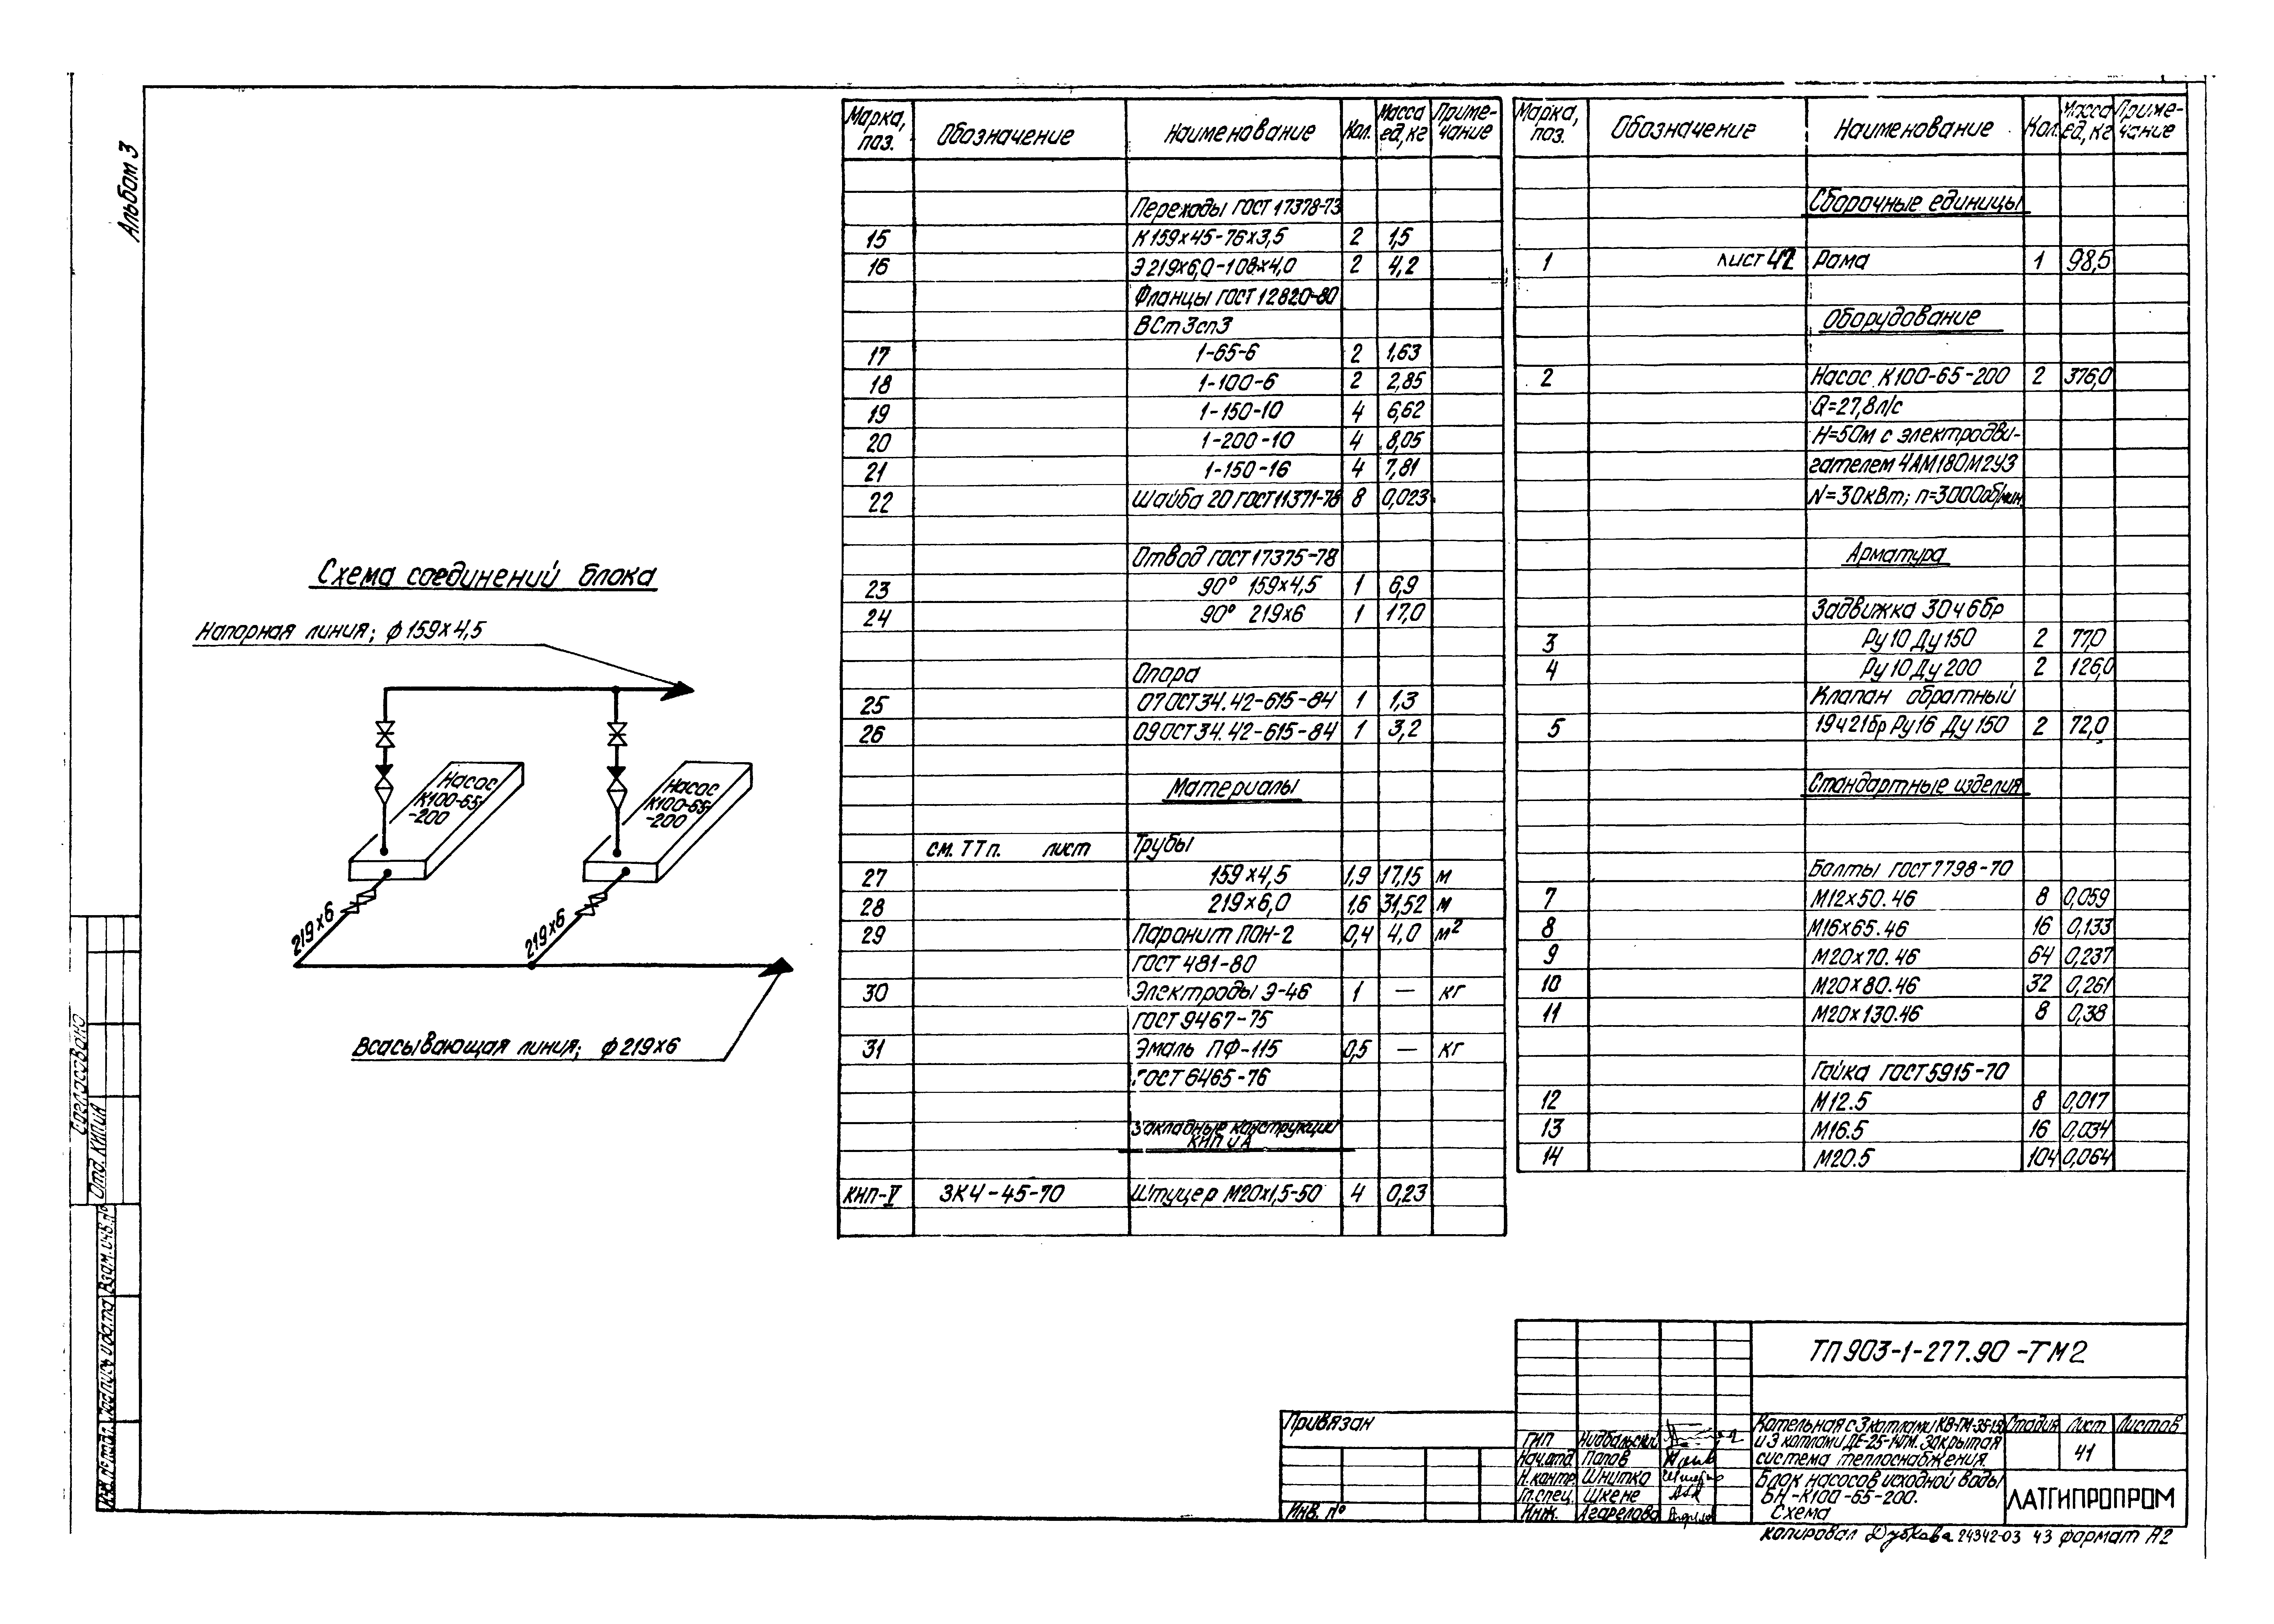 Альбом 3
Схема соединений блока
Напорная линия; ф159х4,5
Насос К100-65-200
Насос К100-65-200
219х6
219х6
Всасывающая линия; ф219х6
Марка, поз. Обозначение Наименование Кол. Масса ед,кг Примечание
Переходы ГОСТ 17378-73
15 К159х45-76х3,5 2 1,5
16 Э219х6,0-108х4,0 2 4,2
Фланцы ГОСТ 12820-80
ВСт3сп3
17 1-65-6 2 1,63
18 1-100-6 2 2,85
19 1-150-10 4 6,62
20 1-200-10 4 8,05
21 1-150-16 4 7,81
22 Шайба 20 ГОСТ 11371-78 8 0,023
Отвод ГОСТ 17375-78
23 90° 159х4,5 1 6,9
24 90° 219х6 1 17,0
Опора
25 07 ОСТ 34.42-615-84 1 1,3
26 09 ОСТ 34.42-615-84 1 3,2
Материалы
см. ТТп. лист Трубы
27 159х4,5 1,9 17,15 м
28 219х6,0 1,6 31,52 м
29 Паронит ПОН-2 0,4 4,0 м²
ГОСТ 481-80
30 Электроды Э-46 1 — кг
ГОСТ 9467-75
31 Эмаль ПФ-115 0,5 — кг
ГОСТ 6465-76
Закладные конструкции
КИП и А
КНП-V ЗКЧ-45-70 Штуцер М20х1,5-50 4 0,23
Марка, поз. Обозначение Наименование Кол. Масса ед,кг Примечание
Сборочные единицы
1 лист 42 Рама 1 98,5
Оборудование
2 Насос К100-65-200 2 376,0
Q=27,8л/с
Н=50м с электродви-
гателем 4АМ180М2У3
N=30кВт; n=3000об/мин.
Арматура
Задвижка 30ч6бр
3 Ру10 Ду150 2 77,0
4 Ру10 Ду200 2 126,0
Клапан обратный
5 19ч21бр Ру16 Ду150 2 72,0
Стандартные изделия
Болты ГОСТ 7798-70
7 М12х50.46 8 0,059
8 М16х65.46 16 0,133
9 М20х70.46 64 0,237
10 М20х80.46 32 0,261
11 М20х130.46 8 0,38
Гайка ГОСТ 5915-70
12 М12.5 8 0,017
13 М16.5 16 0,034
14 М20.5 104 0,064
Согласовано
Отд. КИПиА
Взам.инв.№
Подпись и дата
Инв.№подл.
Привязан
Инв. №
ГИП Нидбальский
Нач.отд Попов
Н.контр. Шнитко
Гл.спец. Шкене
Инж. Агарелова
ТП 903-1-277.90 -ТМ2
Котельная с 3 котлами КВ-ГМ-35-150
и 3 котлами ДЕ-25-14ГМ. Закрытая
система теплоснабжения.
Стадия Лист Листов
41
Блок насосов исходной воды
БН-К100-65-200.
Схема
ЛАТГИПРОПРОМ
копировал Дубкова 24342-03 43 формат А2